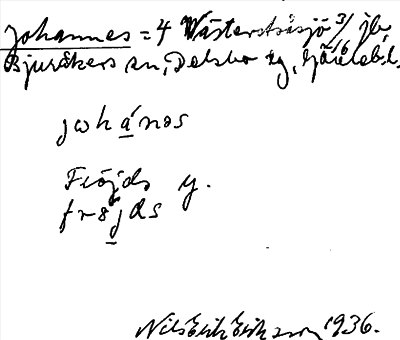 Johannes = 4 Västerstråsjö 3/16 jb,
Bjuråkers sn, Delsbo tg, Gävlebl.
johános
Fröjds y.
frøjds
Nils Erik Eriksson 1936.